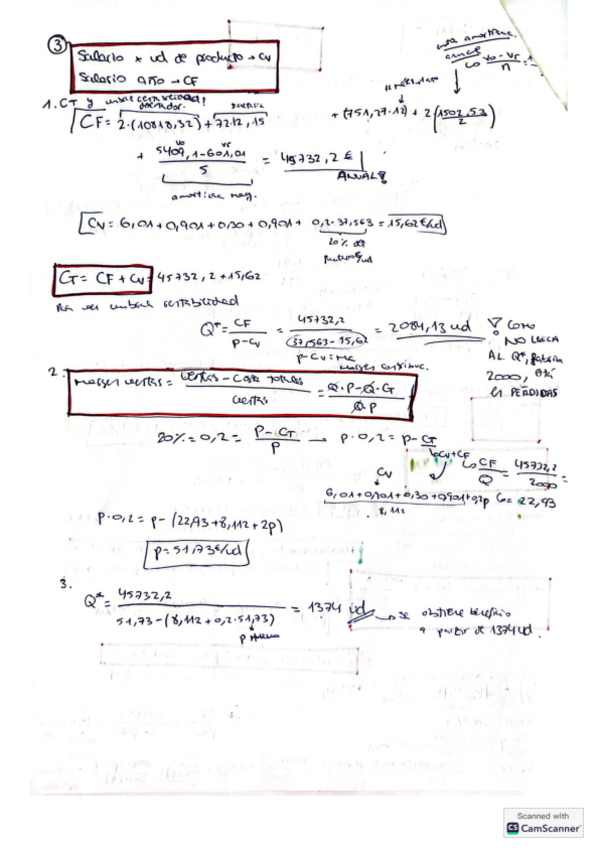 ③ Salario x ud de producto → CV
Salario año → CF
amortizac.
anual
↳ Vo - Vr / n
1. CT y umbral rentabilidad?
CF = 2·(10818,32) + 7212,15 + (751,27·12) + 2(1502,53 / 2)
+ 5409,1 - 601,01 / 5 = 45732,2 € ANUAL
Vo Vr
CV = 6,01 + 0,901 + 0,30 + 0,901 + 0,2·37,563 = 15,62 €/ud
20% de
CT = CF + CV = 45732,2 + 15,62
Para ver umbral rentabilidad
Q* = CF / P - CV = 45732,2 / 37,563 - 15,62 = 2084,13 ud
P - CV = MC
COMO
NO LLEGA
AL Q*, fabrica
2000, está
en PÉRDIDAS
2. Margen ventas = Ventas - Coste totales / Ventas = Q·P - Q·CT / Q·P
20% = 0,2 = P - CT / P → P·0,2 = P - CT
↳ CV + CF
↳ CF / Q = 45732,2 / 2000 =
= 22,93
CV
6,01 + 0,901 + 0,30 + 0,901 + 0,2p
8,112
P·0,2 = P - (22,93 + 8,112 + 2p)
P = 51,73 €/ud
3.
Q* = 45732,2 / 51,73 - (8,112 + 0,2·51,73) = 1374 ud → se obtiene beneficio
a partir de 1374 ud.
Scanned with
CS CamScanner